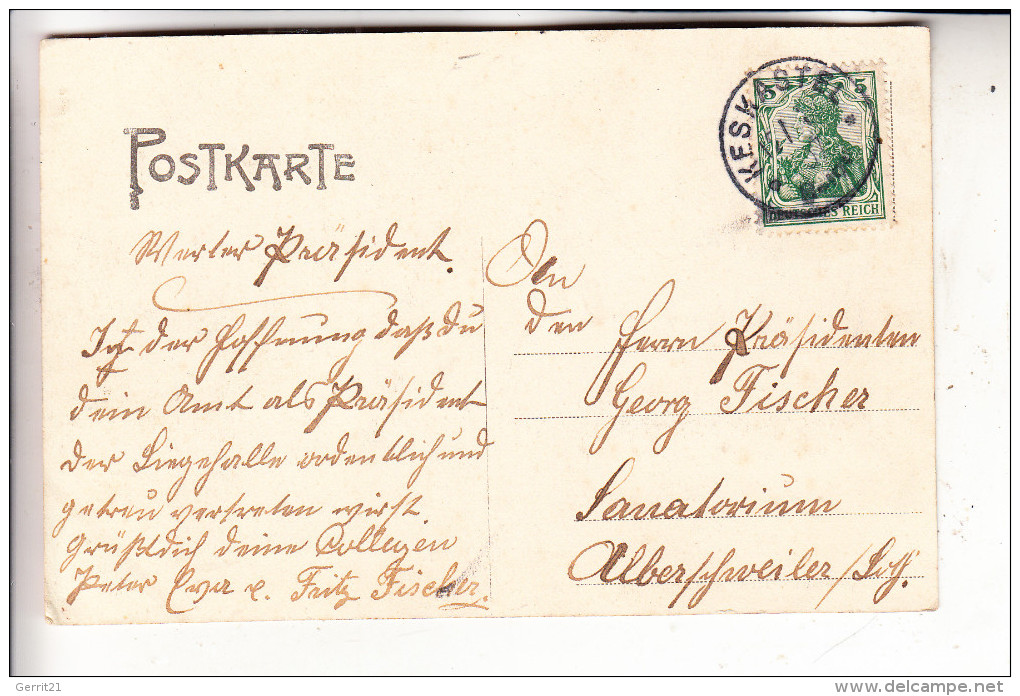 POSTKARTE
KESKASTEL
5 5
DEUTSCHES REICH
Werter Präsident.
In der Hoffnung daß Du
dein Amt als Präsident
der Liegehalle ordentlich und
getreu vertreten wirst.
Grüßt dich deine Collegen
Peter u. Fritz Fischer.
An
den
Herrn Präsidenten
Georg Fischer
Sanatorium
Alberschweiler /Loth.
Gerrit21
delcampe.net